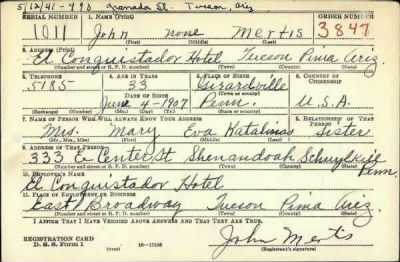 5/12/41-498 Granada St. Tucson, Ariz
SERIAL NUMBER 1. NAME (Print) ORDER NUMBER
1011 John none Mertis 3847
(First) (Middle) (Last)
2. ADDRESS (Print)
El Conquistador Hotel Tucson Pima Ariz.
(Number and street or R. F. D. number) (Town) (County) (State)
3. TELEPHONE 4. AGE IN YEARS 5. PLACE OF BIRTH 6. COUNTRY OF CITIZENSHIP
5185 33 Girardville
DATE OF BIRTH (Town or county)
June 4-1907 Penn. U.S.A.
(Exchange) (Number) (Mo.) (Day) (Yr.) (State or country)
7. NAME OF PERSON WHO WILL ALWAYS KNOW YOUR ADDRESS 8. RELATIONSHIP OF THAT PERSON
Mrs. Mary Eva Katalinas Sister
(Mr., Mrs., Miss) (First) (Middle) (Last)
9. ADDRESS OF THAT PERSON
333 E. Center St Shenandoah Schuylkill Penn.
(Number and street or R. F. D. number) (Town) (County) (State)
10. EMPLOYER'S NAME
El Conquistador Hotel
11. PLACE OF EMPLOYMENT OR BUSINESS
East Broadway Tucson Pima Ariz.
(Number and street or R. F. D. number) (Town) (County) (State)
I AFFIRM THAT I HAVE VERIFIED ABOVE ANSWERS AND THAT THEY ARE TRUE.
REGISTRATION CARD
D. S. S. Form 1 16-17105 John Mertis